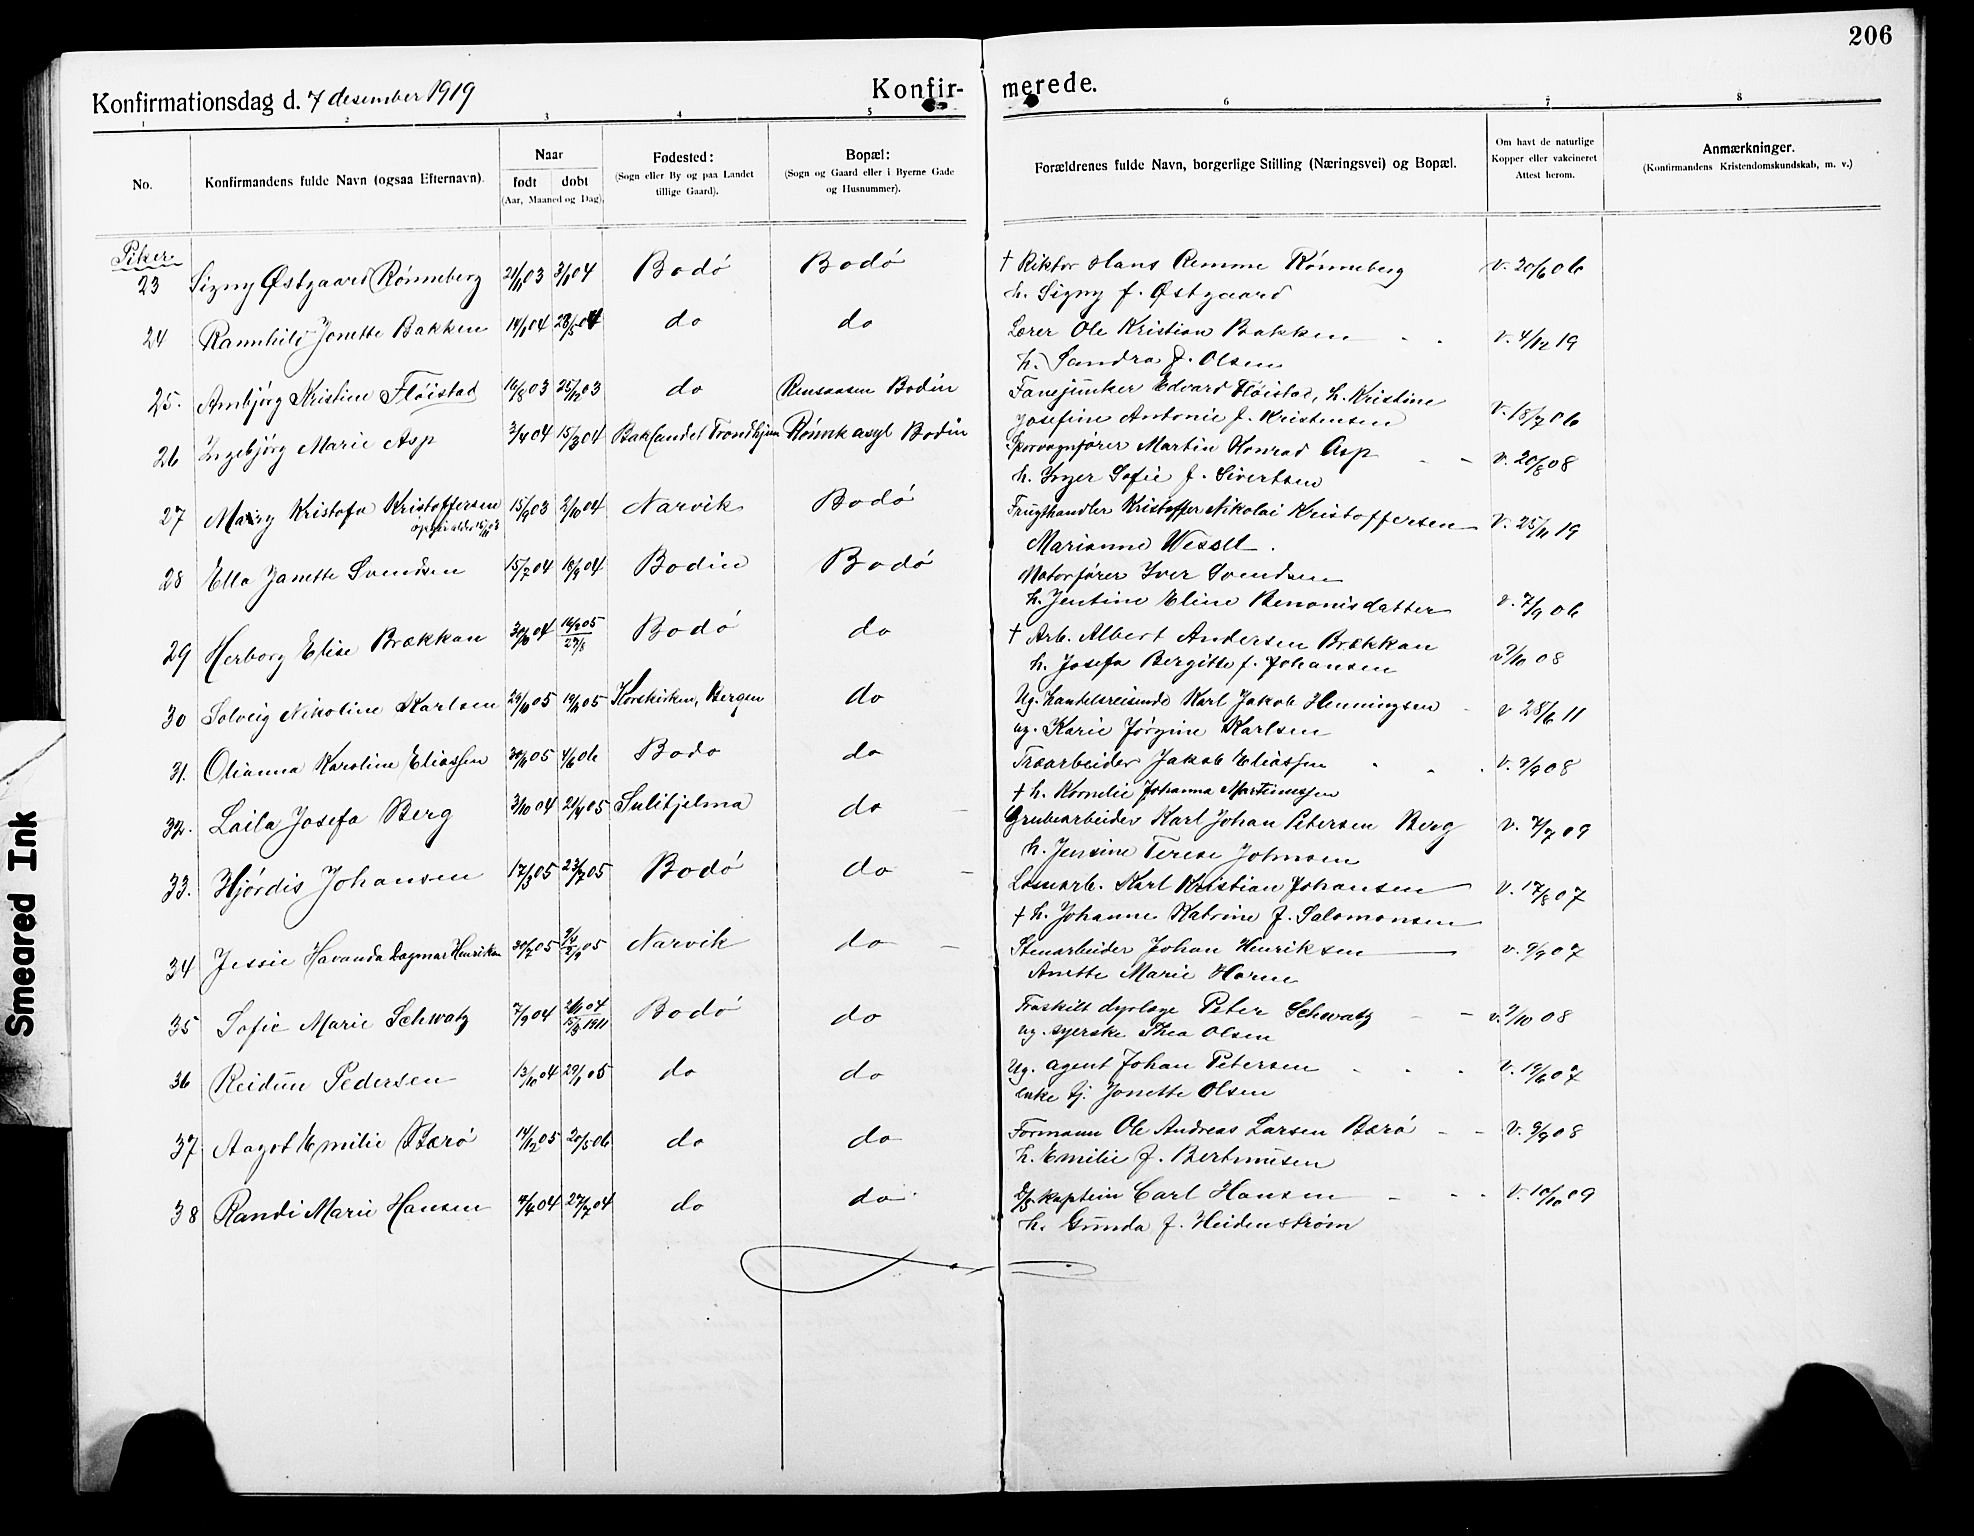 206
Konfirmationsdag d. 7 desember 1919
Konfir-merede.
1 2 3 4 5 6 7 8
No.
Konfirmandens fulde Navn (ogsaa Efternavn).
Naar
født døbt
(Aar, Maaned og Dag).
Fødested:
(Sogn eller By og paa Landet
tillige Gaard).
Bopæl:
(Sogn og Gaard eller i Byerne Gade
og Husnummer).
Forældrenes fulde Navn, borgerlige Stilling (Næringsvei) og Bopæl.
Om havt de naturlige
Kopper eller vakcineret
Attest herom.
Anmærkninger.
(Konfirmandens Kristendomskundskab, m. v.)
Piker.
23 Signy Østgaard Rønneberg 21/11 03 3/1 04 Bodó Bodó † Rektor Hans Remme Rønneberg v. 20/6 06
h. Signy f. Østgaard
24 Rannhild Jonette Bakken 14/1 04 28/5 04 do do Lærer Ole Kristian Bakken v. 4/12 19
h. Sandra f. Olsen
25. Ambjørg Kristine Fløistad 16/8 03 25/12 03 do Rensaasen Bodin Fanejunker Edvard Fløistad, h. Kristine
Josefine Antonie f. Kristensen v. 18/7 06
26 Ingebjørg Marie Asp 2/4 04 15/3 04 Baklandet Trondhjem Rønvik asyl Bodin Sporvognfører Martin Konrad Asp v. 20/8 08
h. Inger Sofie f. Sivertsen
27 Mary Kristofa Kristoffersen 15/9 03 2/10 04 Narvik Bodó Frugthandler Kristoffer Nikolai Kristoffersen v. 25/11 19
Marianne Wessel.
28 Ella Janette Svendsen 15/7 04 18/9 04 Bodin Bodó Motorfører Iver Svendsen
h. Jentine Eline Benonisdatter v. 7/9 06
29 Herborg Elise Brækkan 30/10 04 16/2 05 Bodó do † Arb. Albert Andersen Brækkan
h. Josefa Bergitte f. Johansen v 9/10 08
30 Solveig Nikoline Karlsen 29/10 05 19/11 05 Korskirken, Bergen do Ug. handelsreisende Karl Jakob Henningsen v 28/6 11
ug. Karie Jørgine Karlsen
31. Olianna Karoline Eliassen 30/11 05 4/6 06 Bodo do Træarbeider Jakob Eliassen v. 9/9 08
† h. Kornelie Johanna Martinussen
32. Laila Josefa Berg 3/10 04 21/4 05 Sulitjelma do Grubearbeider Karl Johan Petersen Berg v. 7/7 09
h. Jensine Terese Johnsen
33. Hjørdis Johansen 17/3 05 23/7 05 Bodó do Losarb. Karl Kristian Johansen v. 17/8 07
† h. Johanne Katrine f. Salomonsen
34 Jessie Havanda Dagmar Henriksen 30/7 05 Narvik do Stenarbeider Johan Henriksen v. 9/9 07
Anette Marie Horn
35 Sofie Marie Schwatz 7/9 04 Bodó do Fraskilt dyrlæge Peter Schwatz v. 9/10 08
ug. syerske Thea Olsen
36 Reidun Pedersen 13/10 04 29/1 05 do do Ug. agent Johan Petersen v. 19/6 07
enke tj. Jonette Olsen
37 Aagot Emilie Bærø 14/12 05 20/5 06 do do Formann Ole Andreas Larsen Bærø v. 9/9 08
h. Emilie f. Bertnusen
38 Randi Marie Hansen 4/4 04 27/7 04 do do D/S kaptein Carl Hansen v. 10/10 09
h. Gunda f. Heidenstrøm
Smeared Ink